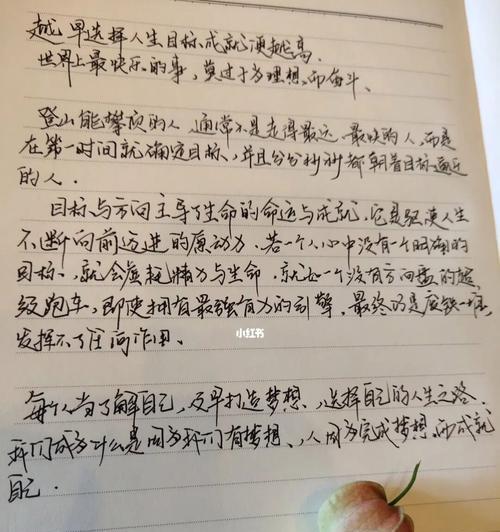 越早选择人生目标成就便越高.
世界上最快乐的事,莫过于为理想而奋斗、
登山能攀顶的人 通常不是走得最远、最快的人,而是
在第一时间就确定目标、并且分分秒秒都朝着目标逼近
的人.
目标与方向主导了生命的命运与成就,它是驱使人生
不断向前迈进的原动力.若一个人心中没有一个明确的
目标、就会虚耗精力与生命.就如一个没有方向盘的超
级跑车,即使拥有最强有力的引擎、最终仍是废铁一堆,
发挥不了任何作用.
小红书
每个人当了解自己,及早打造梦想、选择自己的人生之路.
我们成为什么是因为我们有梦想、人因为完成梦想、而成就
自己.